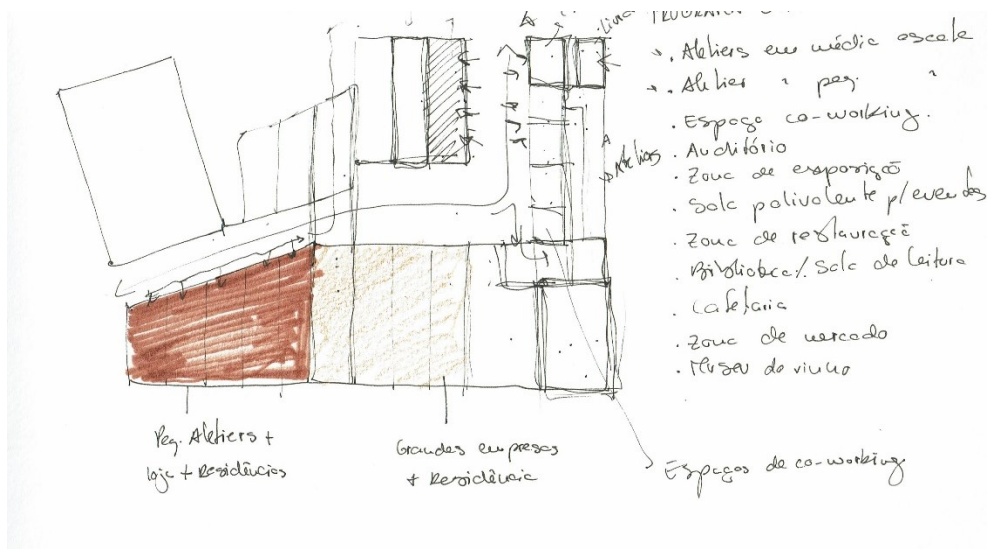 . Ateliers em média escala
. Atelier " peq. "
. Espaço co-working.
. Auditório
. Zona de exposição
. Sala polivalente p/eventos
. Zona de restauração
. Biblioteca/. Sala de leitura
. Cafetaria
. Zona de mercado
. Museu do vinho
Ateliers
Peq. Ateliers +
loja + Residências
Grandes empresas
+ Residência
Espaços de co-working